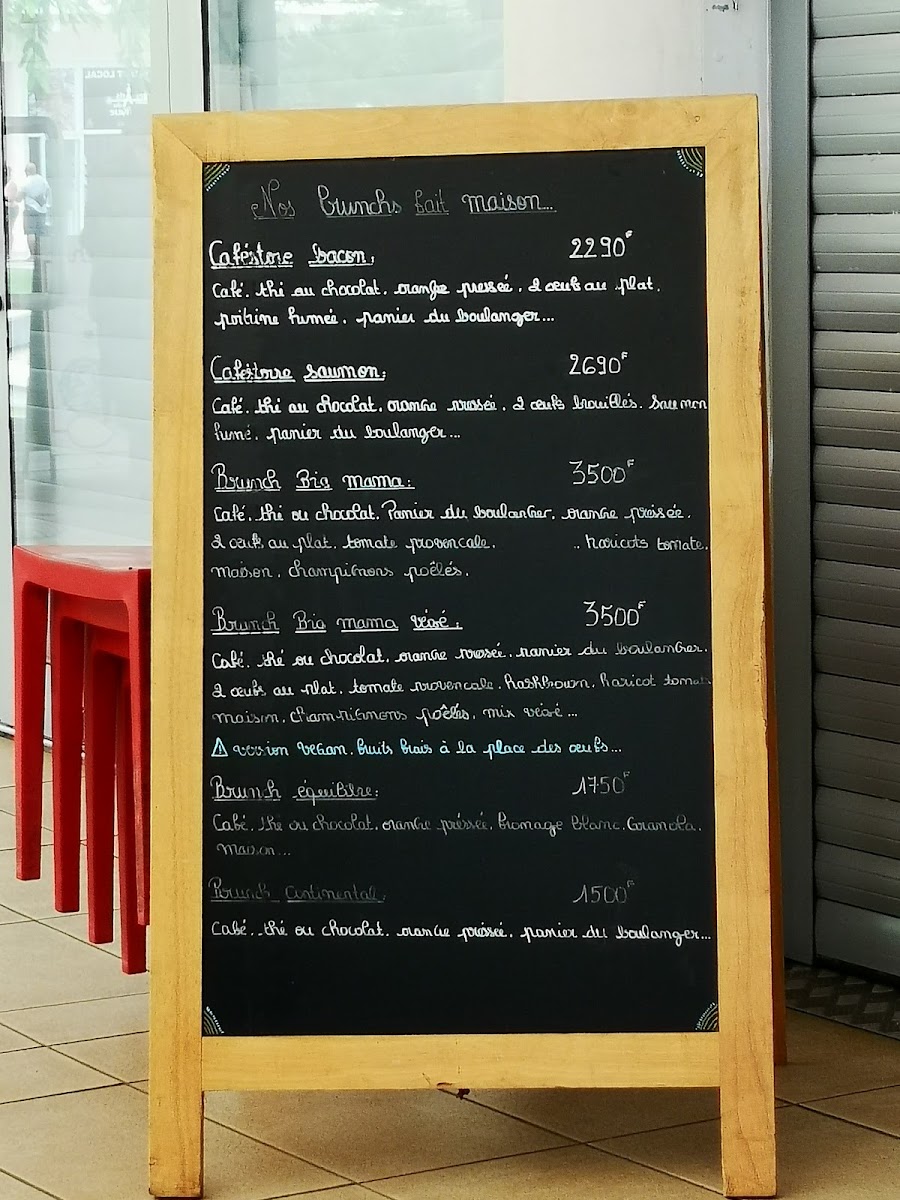 Nos brunchs fait maison...
Caféstore bacon, 2290F
Café, thé ou chocolat, orange pressée, 2 œufs au plat,
poitrine fumée, panier du boulanger...
Caféstore saumon, 2690F
Café, thé au chocolat, orange pressée, 2 œufs brouillés, saumon
fumé, panier du boulanger...
Brunch Big mama: 3500F
Café, thé ou chocolat, Panier du boulanger, orange pressée,
2 œufs au plat, tomate provencale, .. haricots tomate,
maison, champignons poêlés,
Brunch Big mama végé: 3500F
Café, thé ou chocolat, orange pressée, panier du boulanger,
2 œufs au plat, tomate provencale, hashbrown, haricot tomate
maison, champignons poêlés, mix végé...
⚠ version vegan, fruits frais à la place des œufs...
Brunch équilibre: 1750F
Café, thé ou chocolat, orange préssée, fromage blanc, Granola,
maison...
Brunch Continental: 1500F
Café, thé ou chocolat, orange pressée, panier du boulanger...